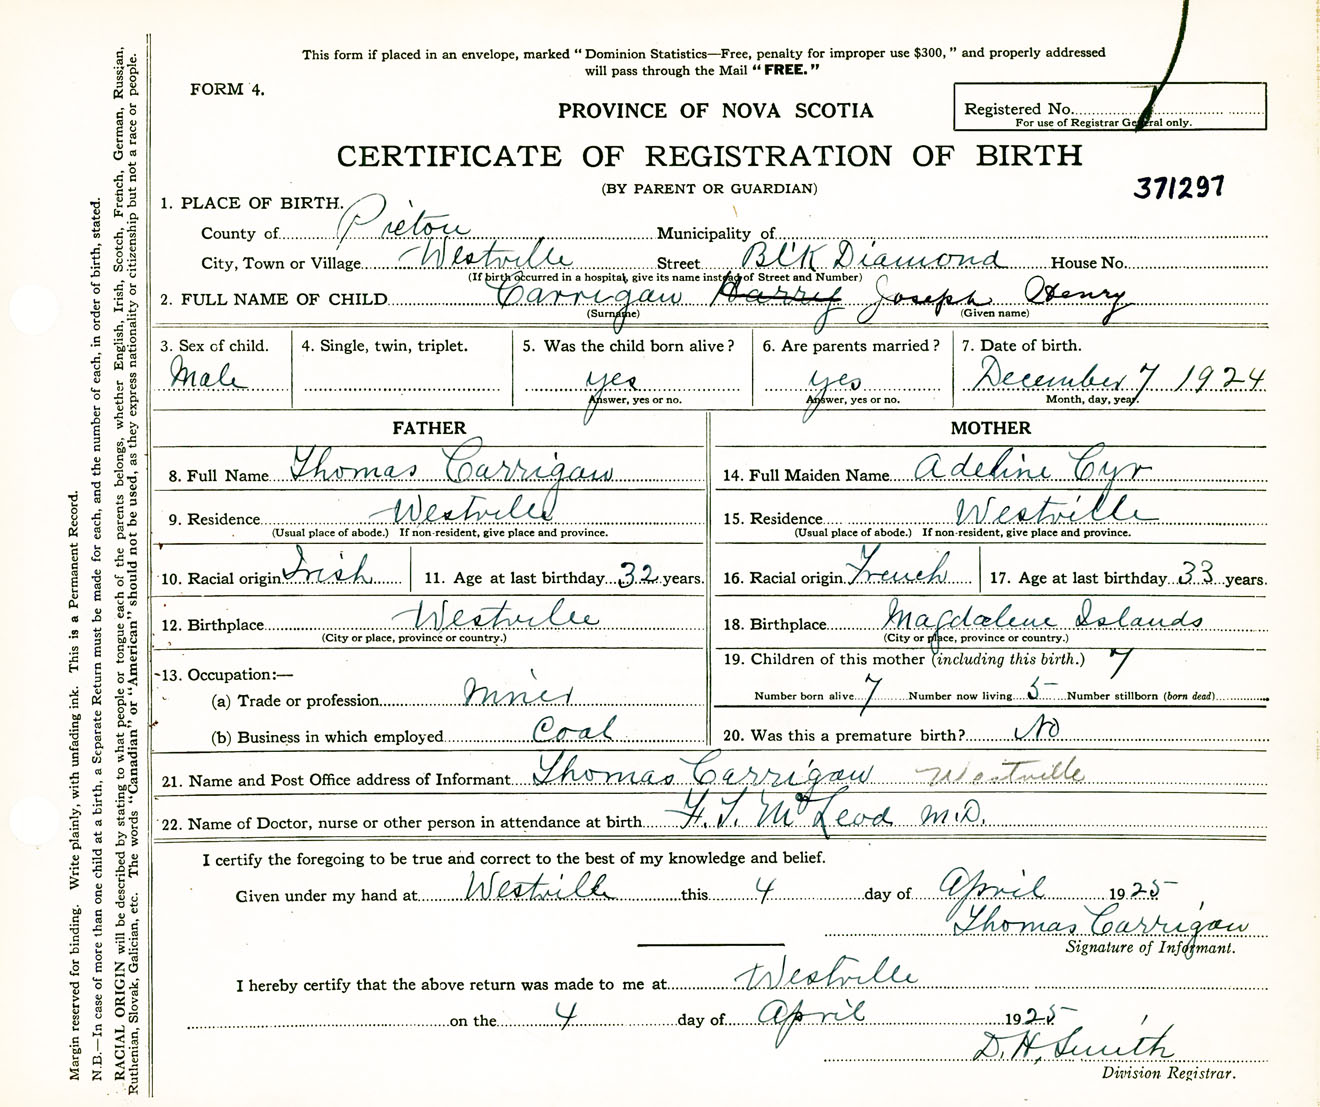 This form if placed in an envelope, marked "Dominion Statistics—Free, penalty for improper use $300," and properly addressed
will pass through the Mail "FREE."
FORM 4.
PROVINCE OF NOVA SCOTIA
Registered No.
For use of Registrar General only.
CERTIFICATE OF REGISTRATION OF BIRTH
(BY PARENT OR GUARDIAN)
371297
1. PLACE OF BIRTH.
County of Pictou Municipality of
City, Town or Village Westville Street Bl'k Diamond House No.
(If birth occurred in a hospital, give its name instead of Street and Number)
2. FULL NAME OF CHILD Carrigan Harry Joseph Henry
(Surname) (Given name)
3. Sex of child. 4. Single, twin, triplet. 5. Was the child born alive? 6. Are parents married? 7. Date of birth.
Male yes yes December 7 1924
Answer, yes or no. Answer, yes or no. Month, day, year.
FATHER MOTHER
8. Full Name Thomas Carrigan 14. Full Maiden Name Adeline Cyr
9. Residence Westville 15. Residence Westville
(Usual place of abode.) If non-resident, give place and province. (Usual place of abode.) If non-resident, give place and province.
10. Racial origin Irish 11. Age at last birthday 32 years. 16. Racial origin French 17. Age at last birthday 33 years.
12. Birthplace Westville 18. Birthplace Magdalene Islands
(City or place, province or country.) (City or place, province or country.)
13. Occupation:— 19. Children of this mother (including this birth.) 7
(a) Trade or profession Miner Number born alive 7 Number now living 5 Number stillborn (born dead)
(b) Business in which employed Coal 20. Was this a premature birth? No
21. Name and Post Office address of Informant Thomas Carrigan Westville
22. Name of Doctor, nurse or other person in attendance at birth F. T. McLeod M.D.
I certify the foregoing to be true and correct to the best of my knowledge and belief.
Given under my hand at Westville this 4 day of April 1925
Thomas Carrigan
Signature of Informant.
I hereby certify that the above return was made to me at Westville
on the 4 day of April 1925
D. H. Smith
Division Registrar.
Margin reserved for binding. Write plainly, with unfading ink. This is a Permanent Record.
N.B.—In case of more than one child at a birth, a Separate Return must be made for each, and the number of each, in order of birth, stated.
RACIAL ORIGIN will be described by stating to what people or tongue each of the parents belongs, whether English, Irish, Scotch, French, German, Russian,
Ruthenian, Slovak, Galician, etc. The words "Canadian" or "American" should not be used, as they express nationality or citizenship but not a race or people.